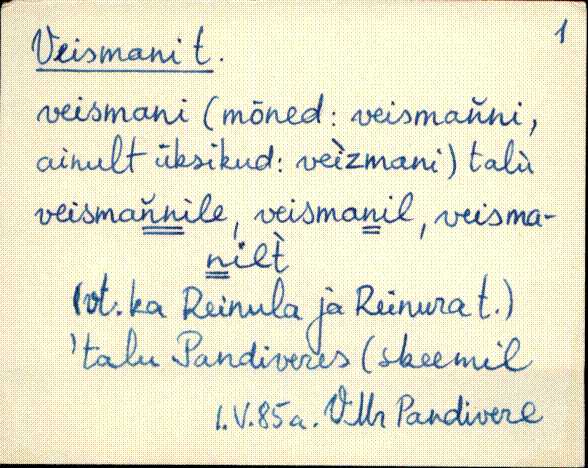 1
Veismani t.
veismani (mõned: veismaňni,
ainult üksikud: veìzmani) talù
veismaňnile, veismanil, veisma-
nilt̀
(vt. ka Reinula ja Reinura t.)
'talu Pandiveres (skeemil
1.V.85a. VMr Pandivere